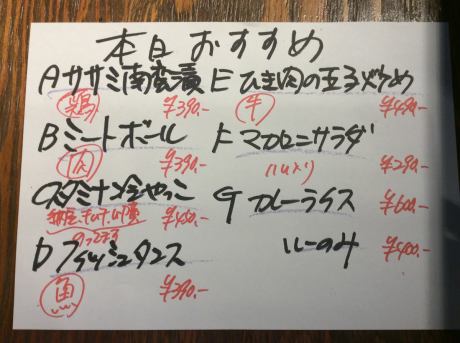 本日おすすめ
A ササミ南蛮漬
鶏 ¥390.-
B ミートボール
肉 ¥390.-
C スタミナ冷やっこ
納豆、キムチ、
のってます
D フィッシュダンス
魚 ¥390.-
E ひき肉の玉子炒め
牛 ¥490.-
F マカロニサラダ
ハム入り ¥290.-
G カレーライス ¥600.-
ルーのみ ¥400.-